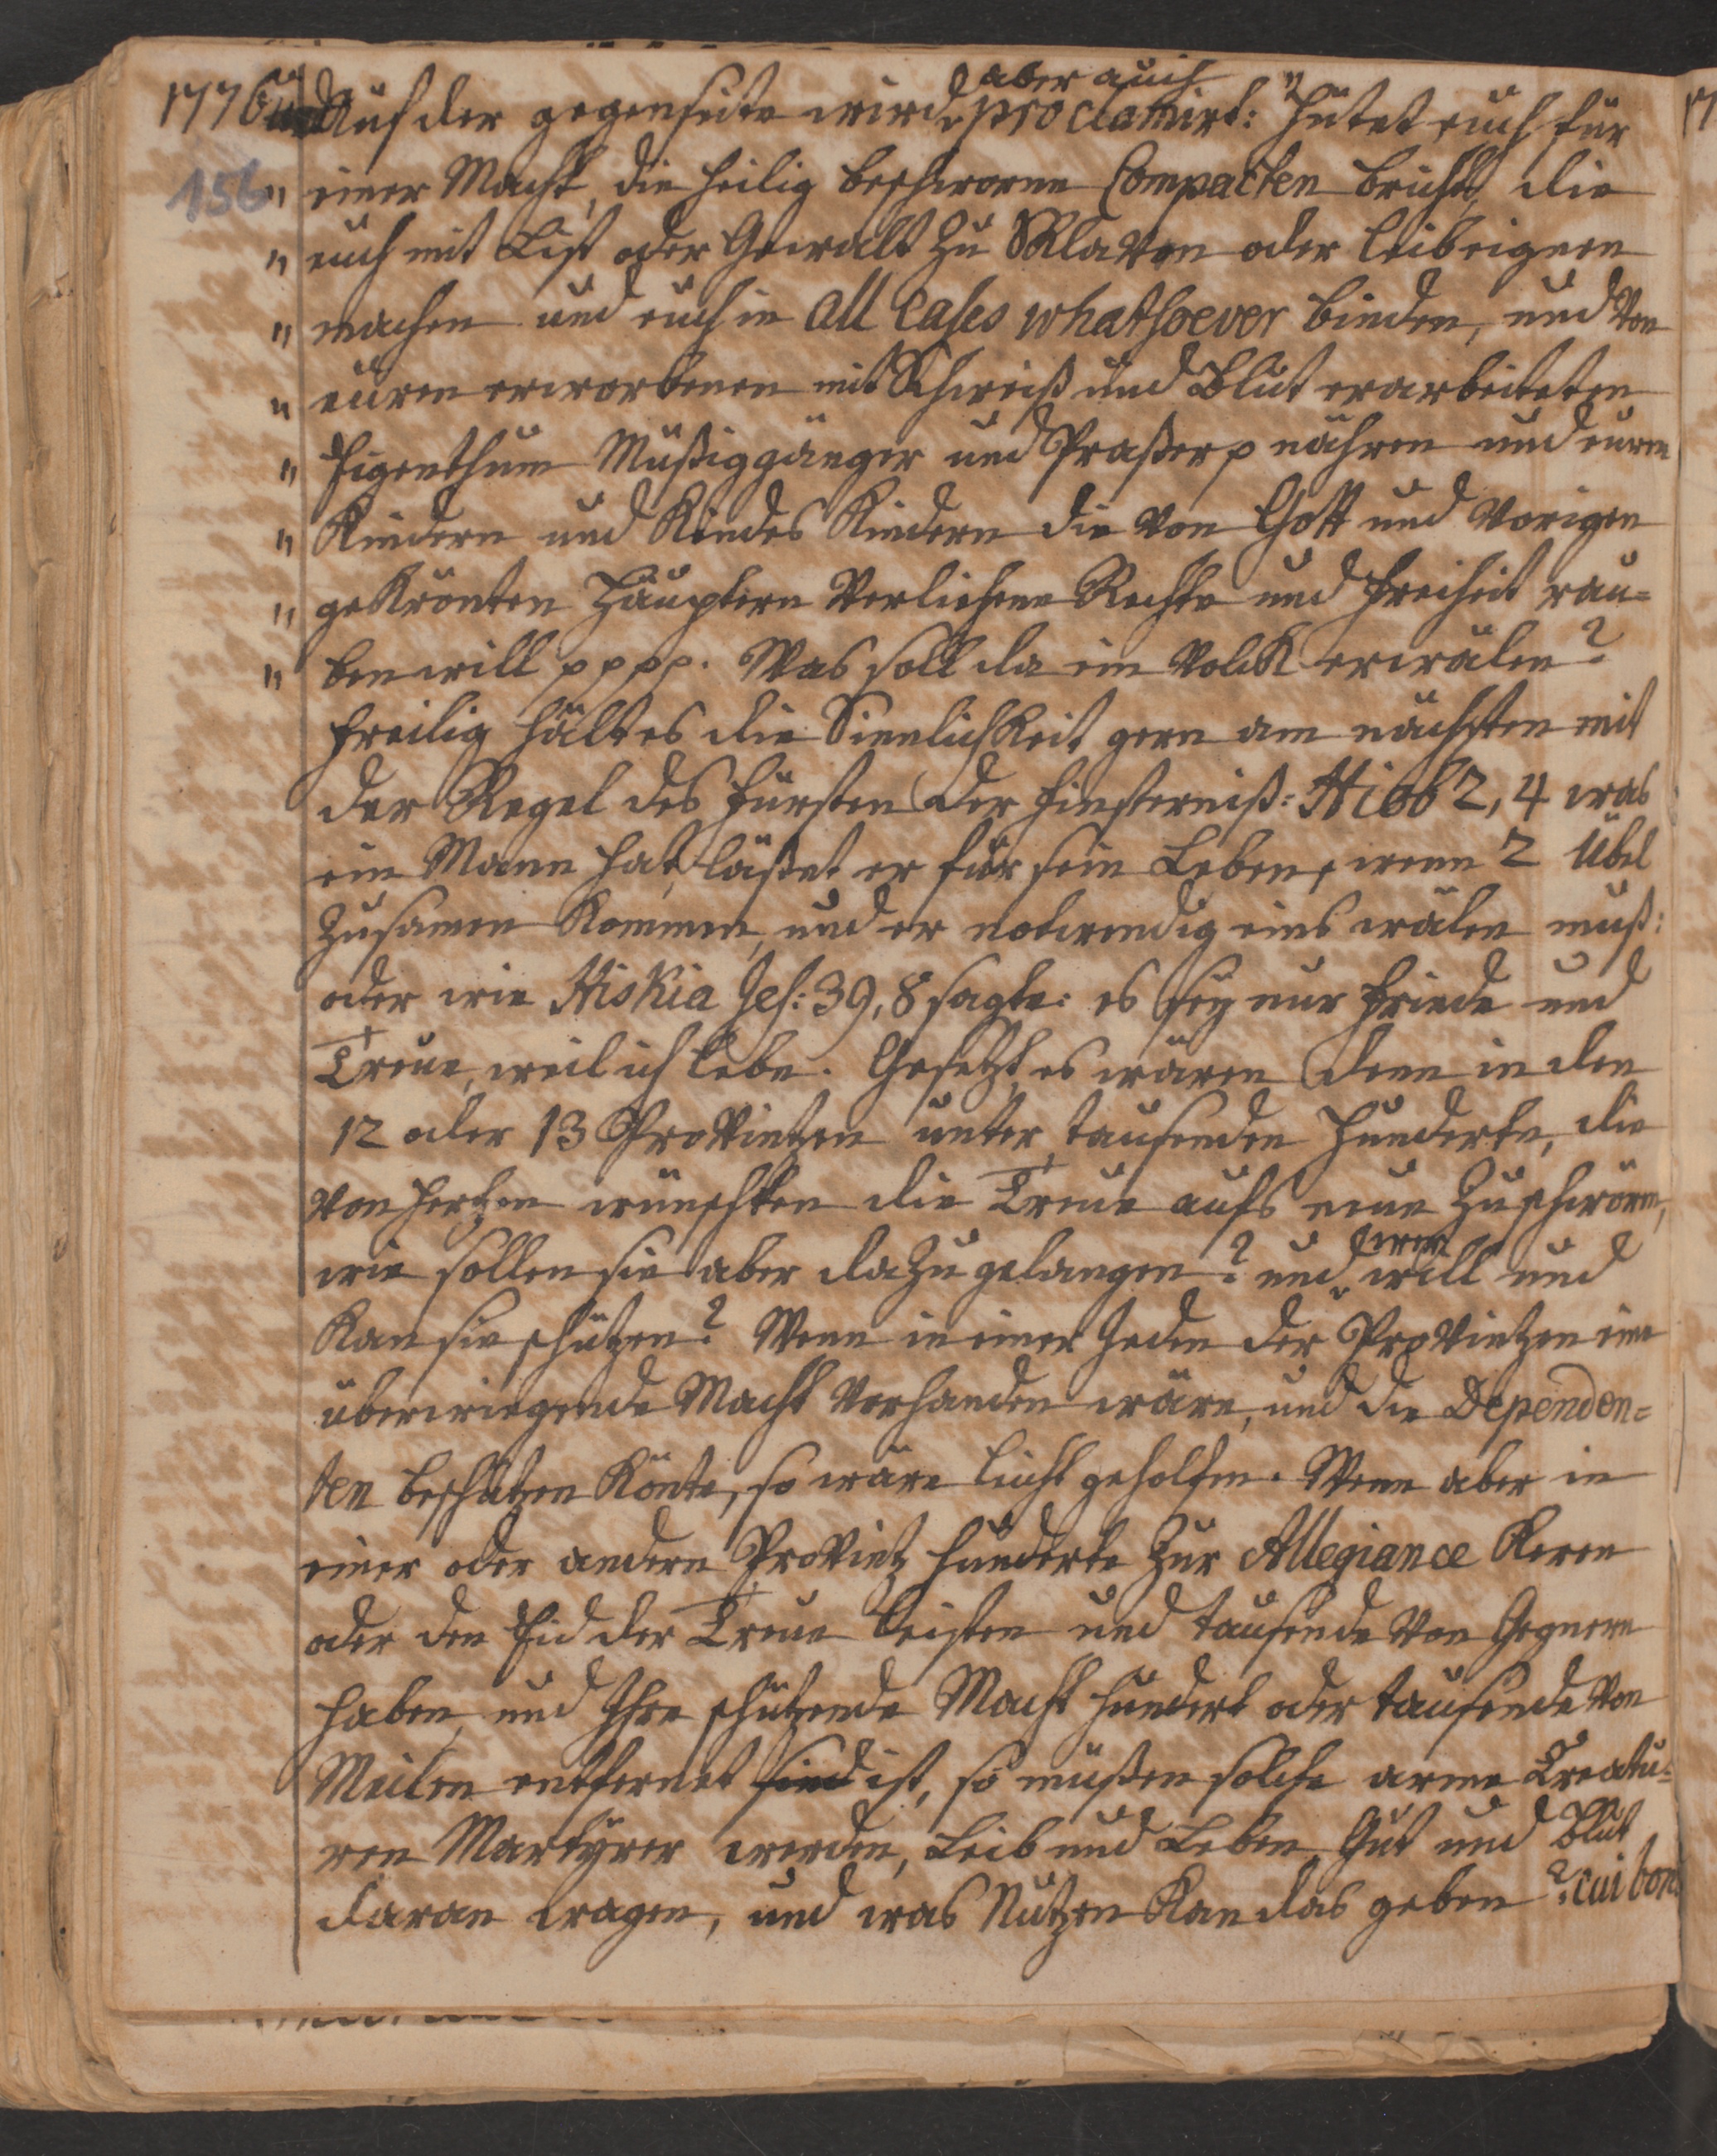 1776 Auf der gegenseite wird aber auch proclamirt: "Hütet euch für
156 " einer Macht, die heilig beschworne Compacten bricht, die
" euch mit List oder Gewalt zu Sklaven oder leibeignen
" machen und euch in all Cases whatsoever binden, und von
" euren erworbenen mit Schweiß und Blut erarbeiteten
" Eigenthum Müßiggänger und Praßer p nähren und euren
" Kindern und Kindes Kindern die von Gott und vorigen
" gekrönten Häuptern verliehene Rechte und Freiheit rau=
" ben will pppp. Was soll da ein Volck erwälen?
freilig hält es die Sinnlichkeit gern am nächsten mit
der Regel des Fürsten der Finsterniß: Hiob 2, 4 was
ein Mann hat, läßet er für sein Leben, wenn 2 Übel
zusamen kommen, und er notwendig eins wälen muß:
oder wie Hiskia Jes: 39, 8 sagte: es sey nur Friede und
Treue, weil ich lebe. Gesetzt, es wären denn in den
12 oder 13 Provintzen unter tausenden Hunderte, die
von Hertzen wünschten die Treue aufs neue zu schwören,
wie sollen sie aber dazu gelangen? und wer will und
kan sie schützen? Wenn in einer Jeden der Provintzen eine
überwiegende Macht vorhanden wäre, und die Dependen=
ten beschützen könte, so wäre leicht geholfen. Wenn aber in
einer oder andern Provintz hunderte zur Allegiance keren
oder den Eid der Treue leisten und tausende von Gegnern
haben, und Ihre schützende Macht hundert oder tausende von
Meilen entfernet sind ist, so müßen solche arme Creatu=
ren Martyrer werden, Leib und Leben, Gut und Blut
daran wagen, und was Nutzen kan das geben? cui bono